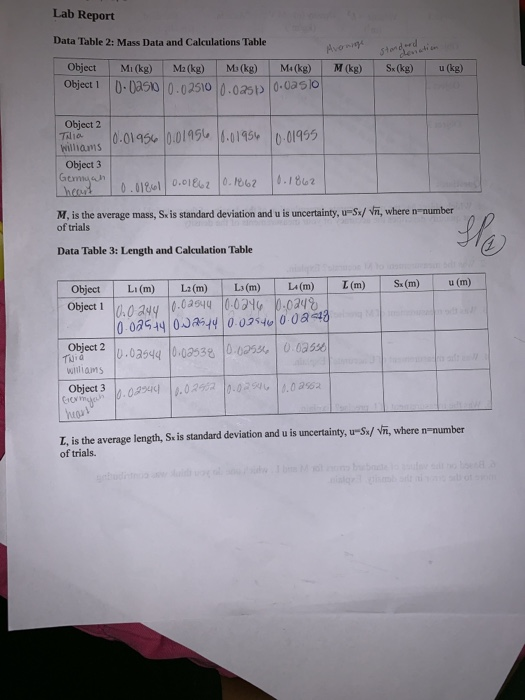 Lab Report
Data Table 2: Mass Data and Calculations Table
Average standard deviation
Object M1 (kg) M2 (kg) M3 (kg) M4 (kg) M (kg) Sx (kg) u (kg)
Object 1 0.02510 0.02510 0.02510 0.02510
Object 2
Tilia williams 0.01956 0.01956 0.01956 0.01955
Object 3
heart 0.01861 0.01862 0.1862 0.1862
M, is the average mass, Sx is standard deviation and u is uncertainty, u=Sx/ √n, where n=number
of trials
Data Table 3: Length and Calculation Table
Object L1 (m) L2 (m) L3 (m) L4 (m) L (m) Sx (m) u (m)
Object 1 0.0244 0.02544 0.0246 0.0248
0.02544 0.02544 0.02546 0.02548
Object 2
williams 0.02544 0.02538 0.02536
Object 3
heart 0.02544
L, is the average length, Sx is standard deviation and u is uncertainty, u=Sx/ √n, where n=number
of trials.